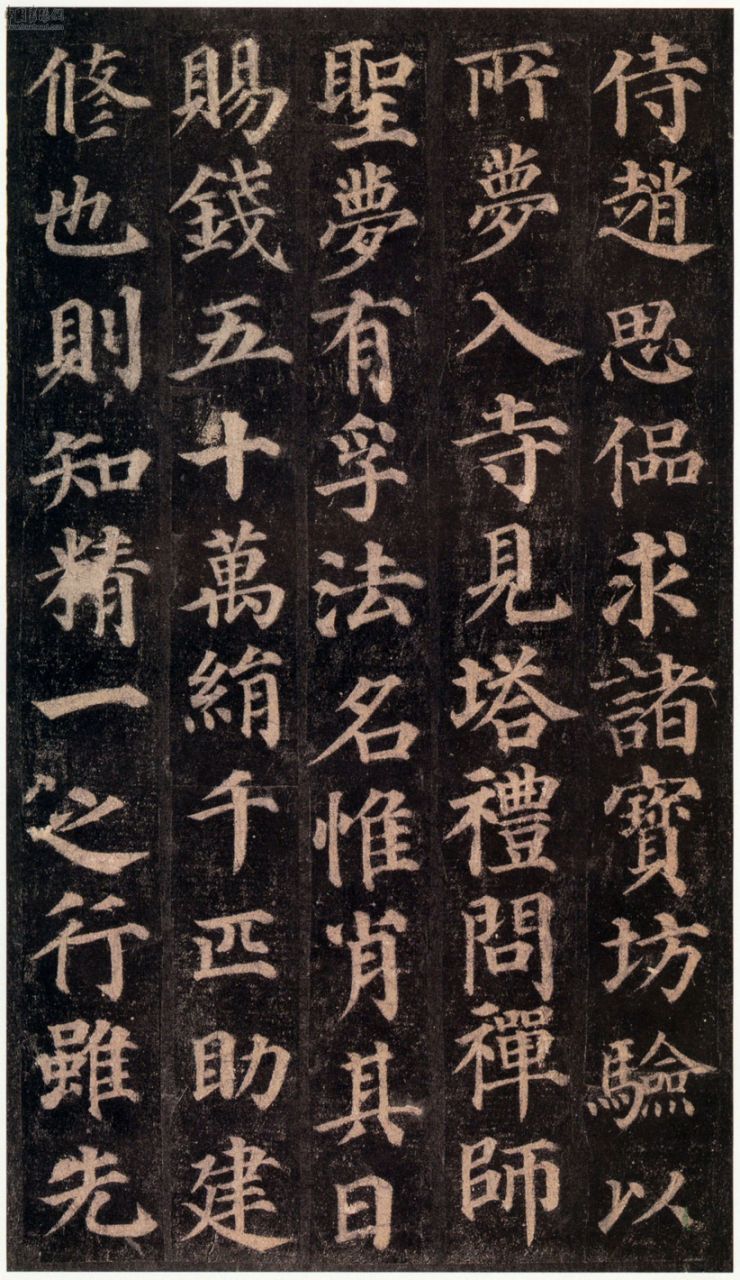 侍趙思侃求諸寶坊驗以
所夢入寺見塔禮問禪師
聖夢有孚法名惟肖其日
賜錢五十萬絹千匹助建
修也則知精一之行雖先